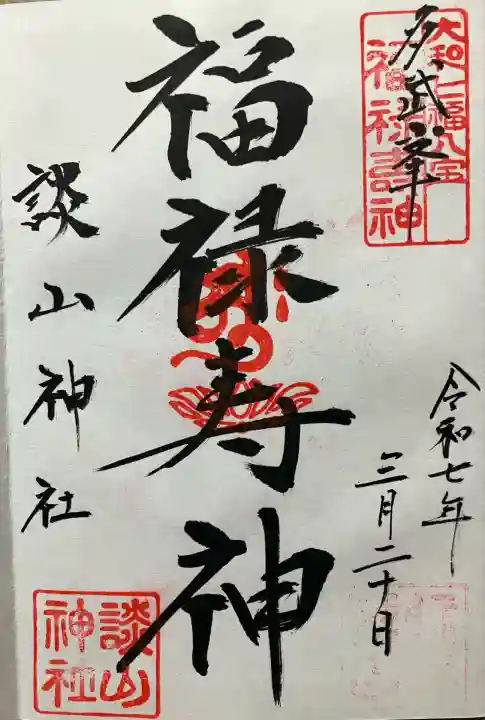 多武峯
大和七福八宝
福禄寿神
福禄寿神
令和七年
三月二十日
談山神社
談山神社